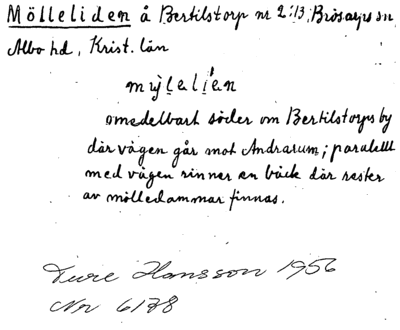 Mölleliden å Bertilstorp nr 2:13, Brösarps sn,
Albo hd, Krist. län
omedelbart söder om Bertilstorps by
där vägen går mot Andrarum; parallellt
med vägen rinner en bäck där rester
av mölledammar finnas.
Ture Hansson 1956
Nr 6178